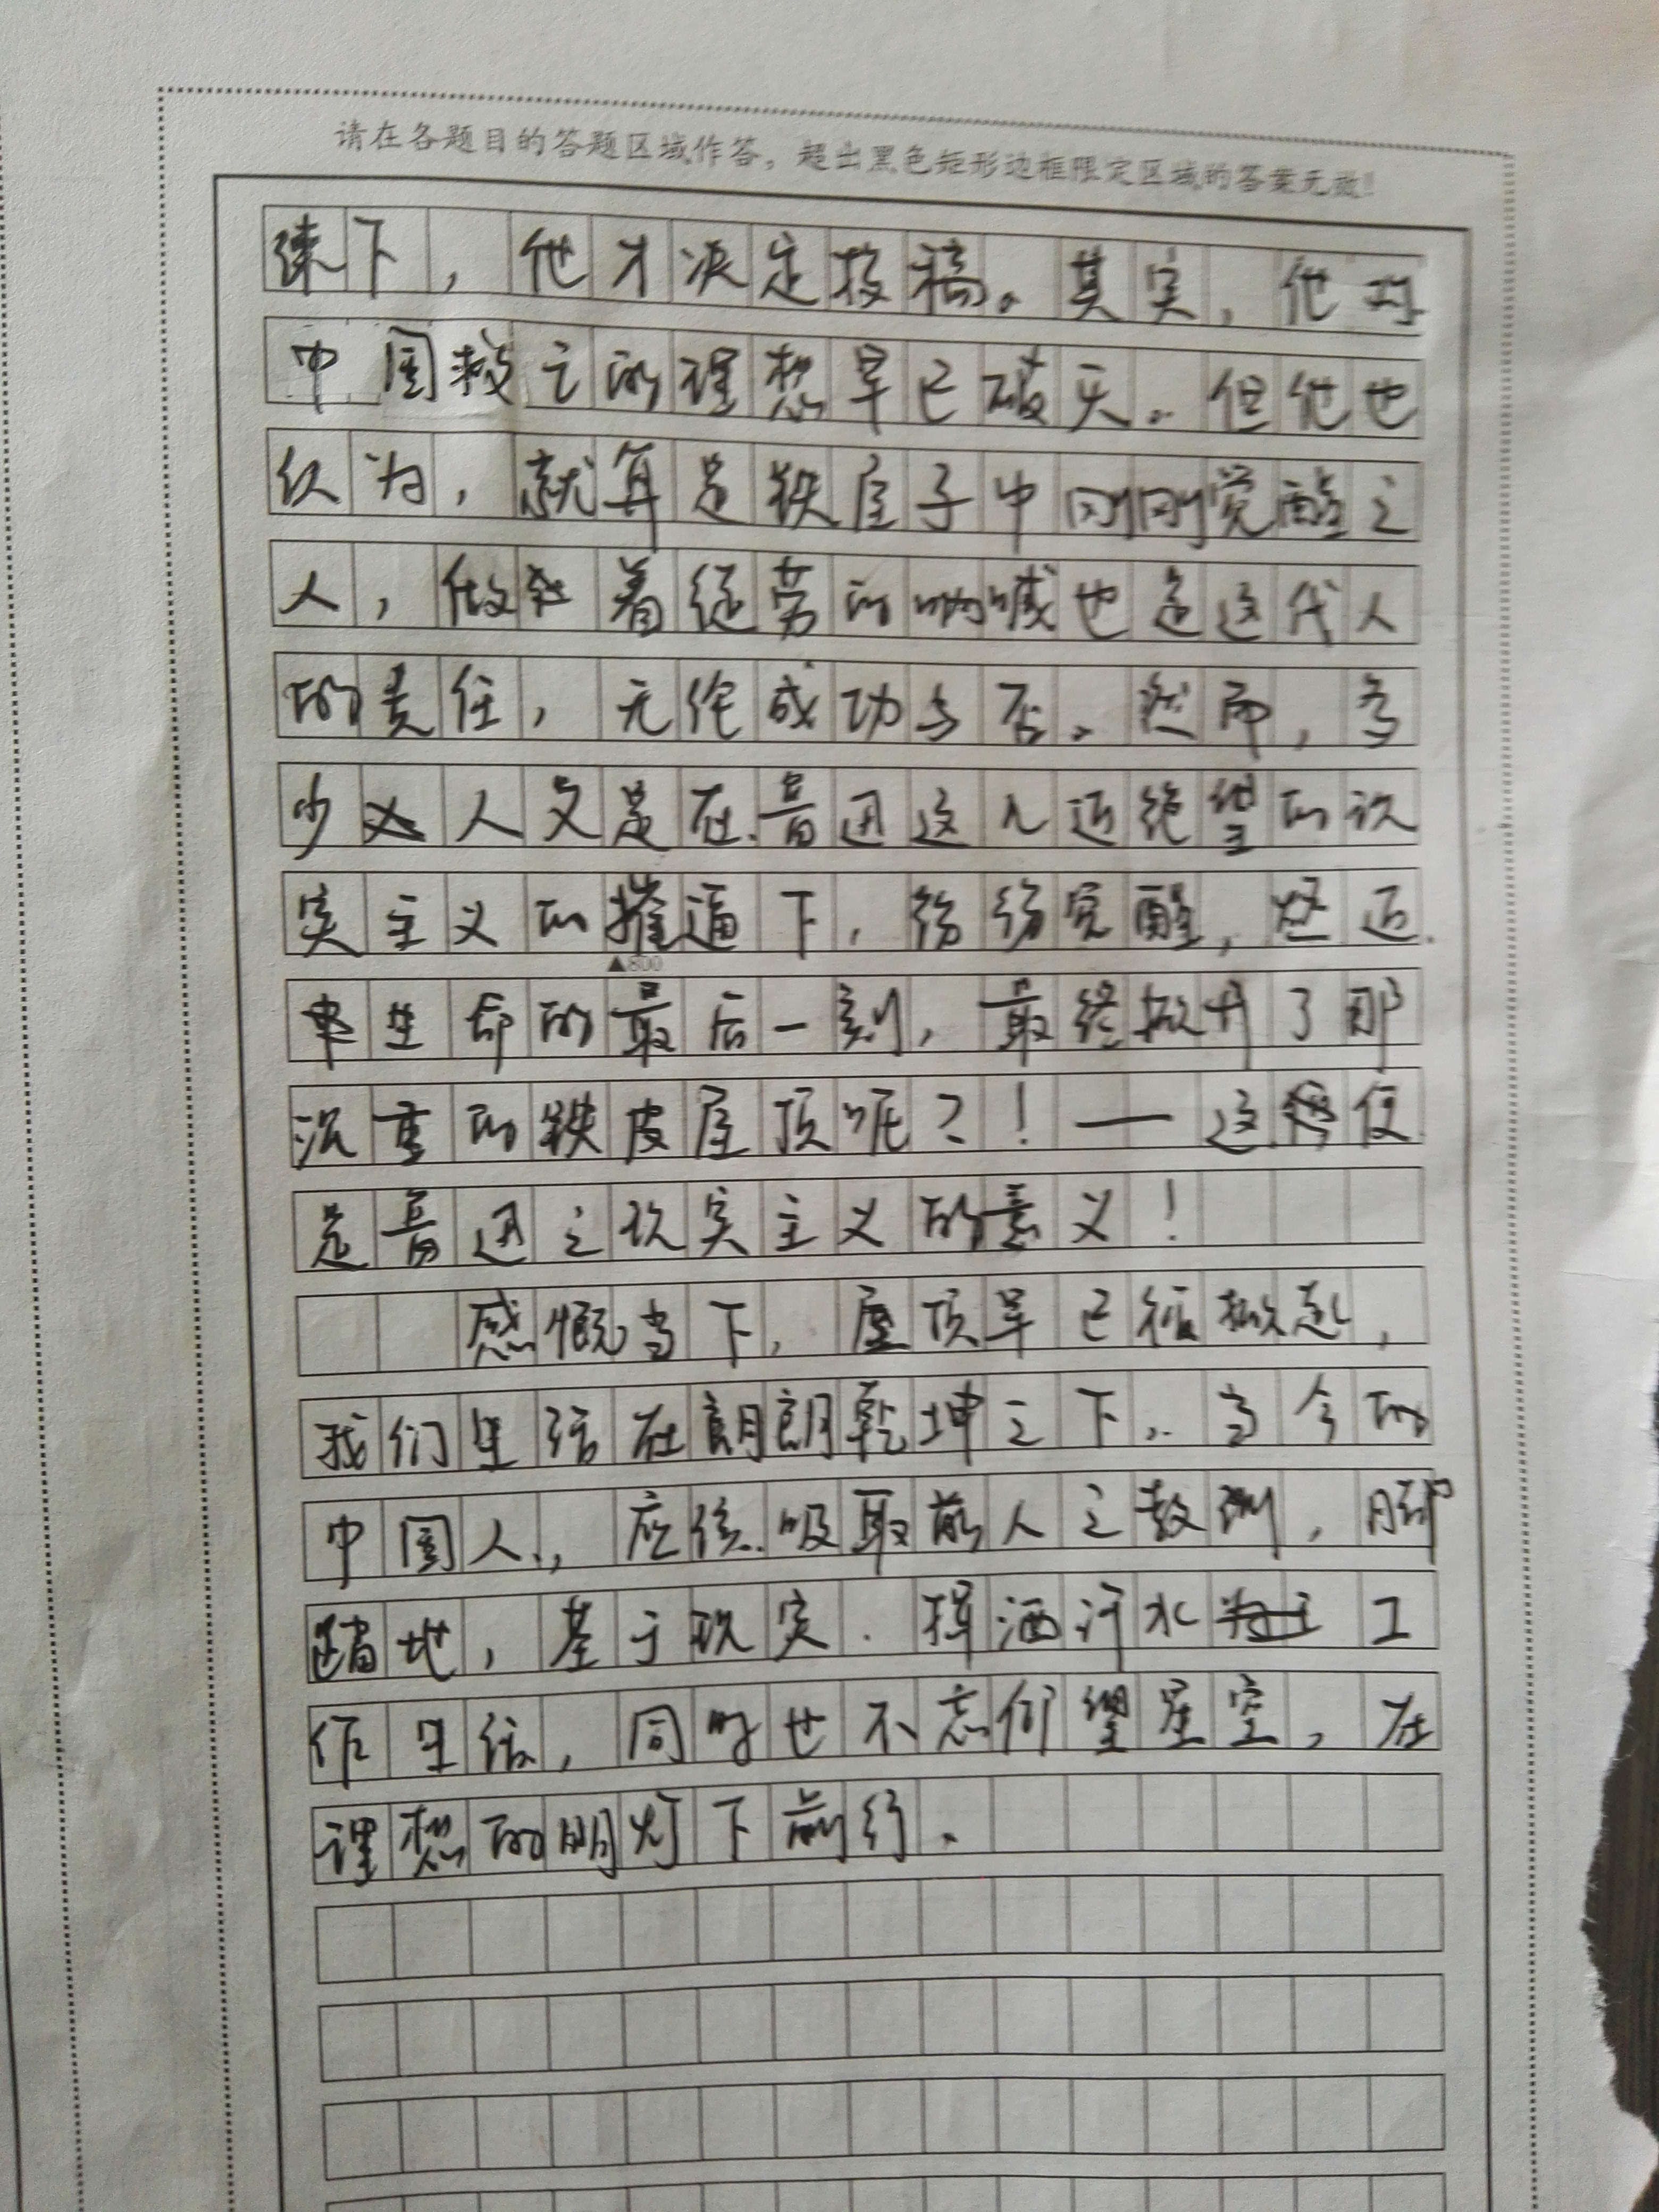 请在各题目的答题区域作答，超出黑色矩形边框限定区域的答案无效！
下，他才决定投稿。其实，他对
中国救亡的理想早已破灭。但他也
认为，就算是铁屋子中刚刚觉醒之
人，做着徒劳的呐喊也是这代人
的责任，无论成功与否。然而，多
少人又是在鲁迅这几近绝望的现
实主义的摧逼下，纷纷觉醒，迈
生命的最后一刻，最终掀开了那
▲800
沉重的铁皮屋顶呢？！——这便
是鲁迅之现实主义的意义！
感慨当下，屋顶早已被掀起，
我们生活在朗朗乾坤之下。当今的
中国人，应该吸取前人之教训，脚
踏地，基于现实，挥洒汗水工
作生活，同时也不忘仰望星空，在
理想的明灯下前行。